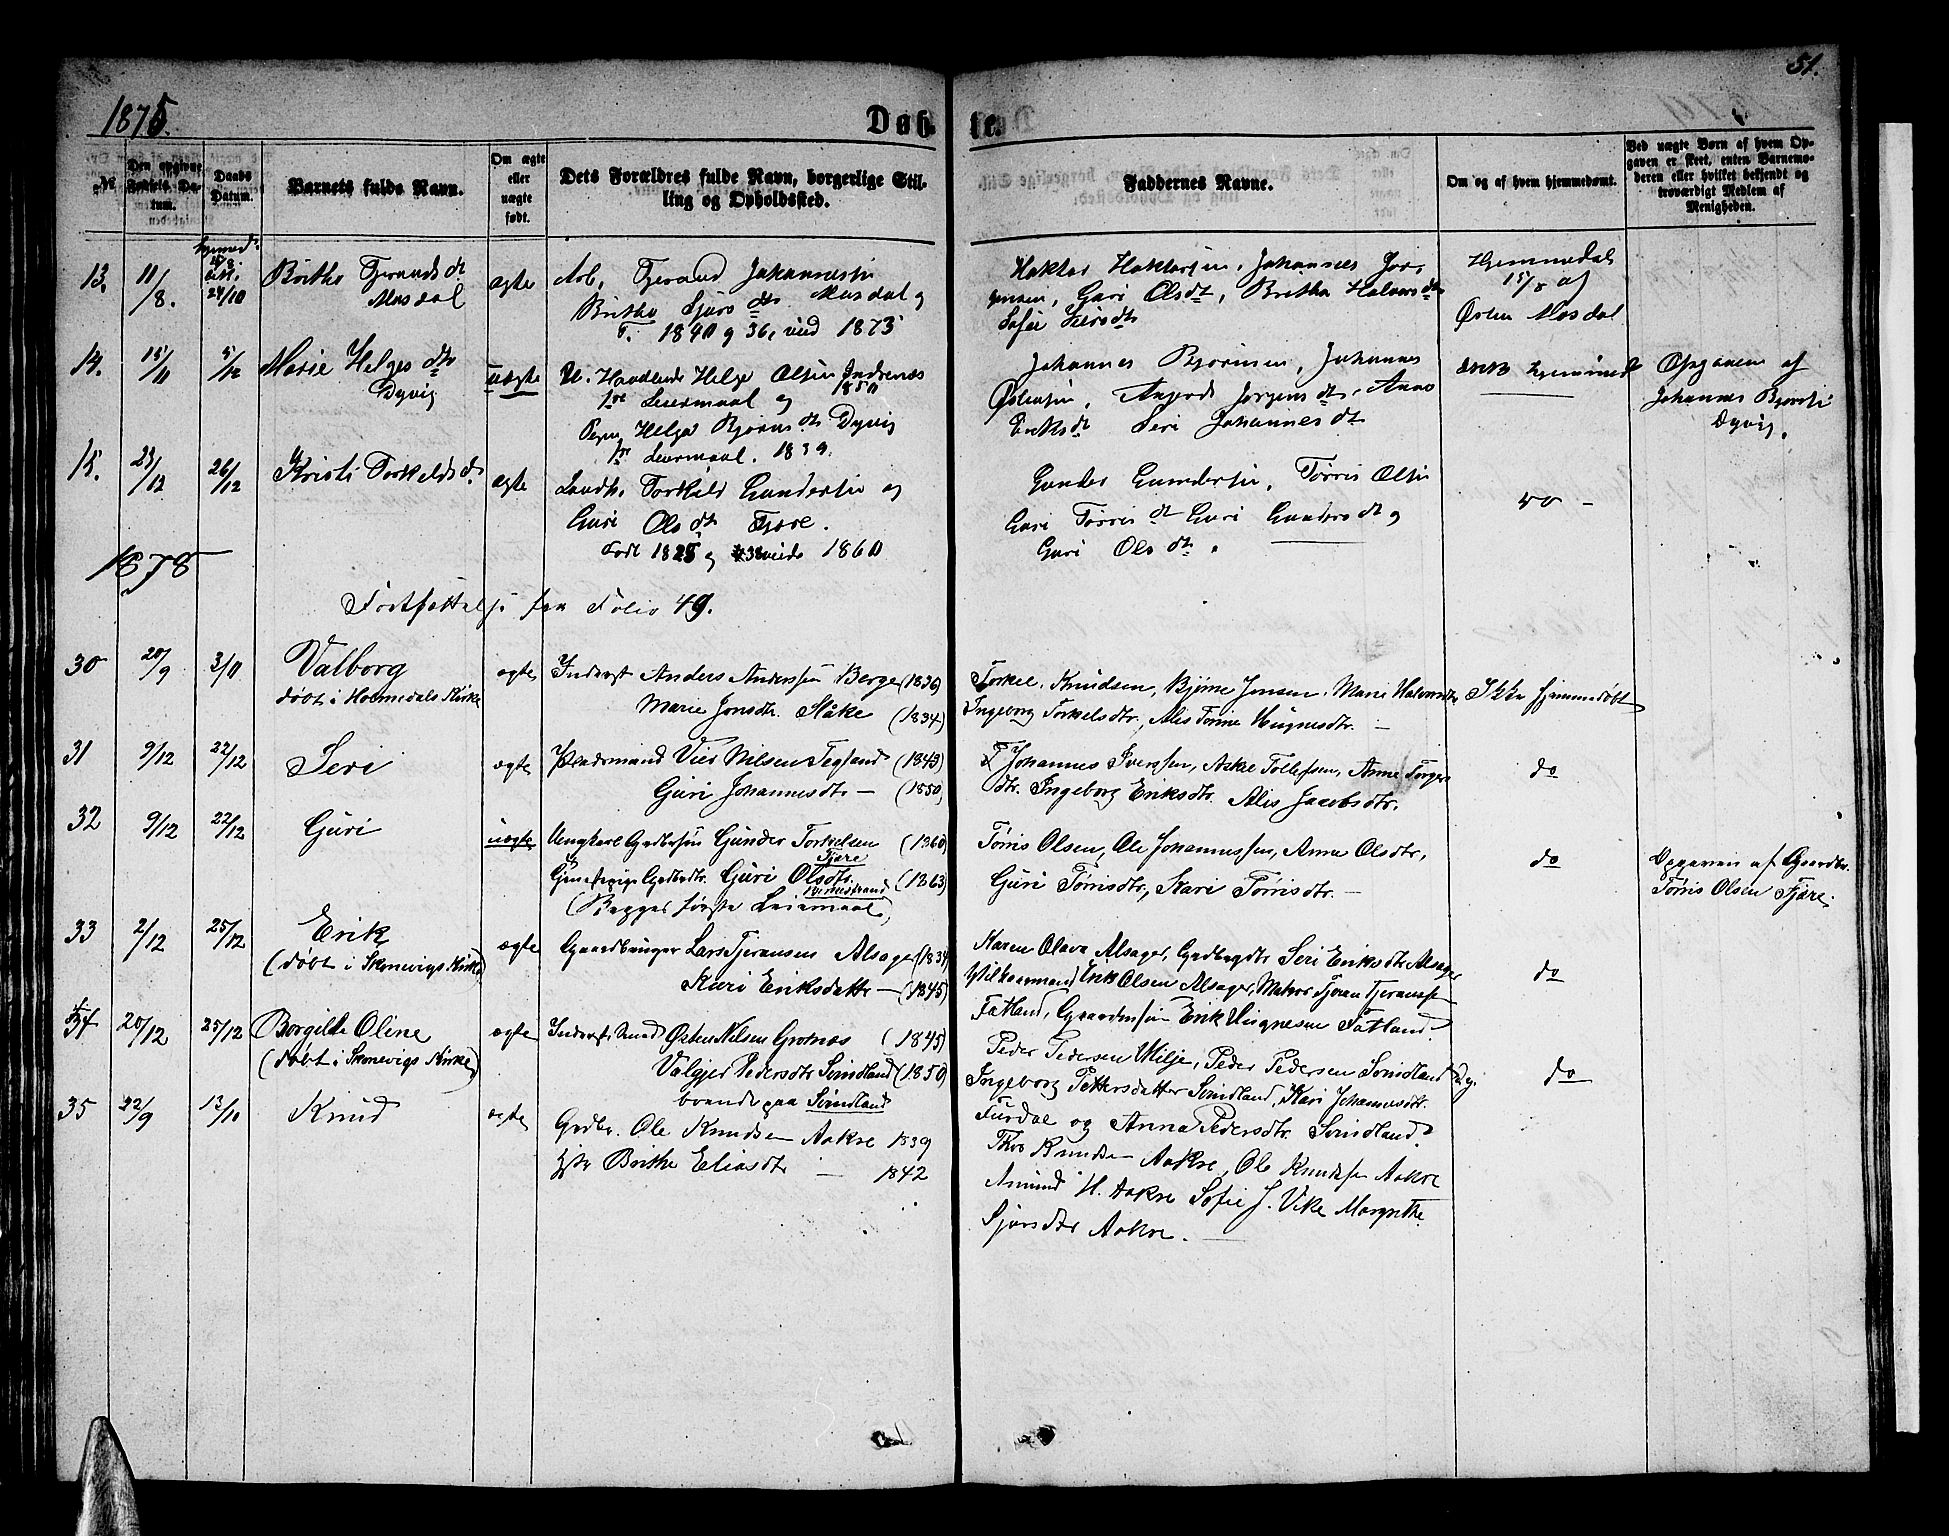 51.
1875.
Døb
te.
No
Den opgivne Fødsels-Datum.
Daabs Datum.
Barnets fulde Navn.
Om ægte eller uægte født.
Dets Forældres fulde Navn, borgerlige Stilling og Opholdssted.
Faddernes Navne.
Om og af hvem hjemmedøbt.
Ved uægte Børn af hvem Opgaven er skeet, enten Barnemoderen eller hvilket bekjendt og troværdigt Medlem af Menigheden.
13. 11/8. 15/8. 24/10
Britha Tjerands dt
Mosdal
ægte
Arb. Tjerand Johannesen
Britha Sjurs dtr Mosdal og
F. 1840 og 36, vied 1873
Haktor Haktorsen, Johannes Jør-
gensen, Guri Olsdt, Britha Halvorsdtr
Sofie Siursdtr
Hjemmedøbt
15/8 af
Østen Mosdal
14. 15/11 5/12
Marie Helges dtr
Dyvig
uægte
U. Handlende Helge Olsen Indrenæs
1850
1ste Leiermaal og
Pigen Helga Bjørns dtr Dyvig
1ste Leiermaal. 1839.
Johannes Bjørnsen, Johannes
Østensen, Angerd Jørgens dtr, Anna
Eriksdt Seri Johannesdt
ikke hjemmed
Opgaven af
Johannes Bjørnsen
Dyvig.
15. 23/12 26/12
Kristi Torkelds d.
ægte
Landh. Torkild Gundersen og
Guri Ols dtr Fjære.
Født 1825 og 38 viede 1860
Gunder Gundersen, Tørris Olsen
Guri Tørris dt Guri Gunders dt og
Guri Ols dtr.
do -
1878
Fortsættelse fra Folio 49.
30 20/9 3/11
Valborg
døbt i Holmedals Kirke
ægte
Inderst Anders Anderssen Berge (1836)
Marie Jonsdtr. Skåke (1834)
Torkel Knudsen, Bjørne Jonsen, Marie Halvorsdtr
Ingeborg Torkelsdtr, Alis Torine Hugnesdtr. -
Ikke hjemmedøbt
31 9/12 22/12
Seri
ægte
Pladsmand Vier Nilsen Tegland (1843)
Guri Johannesdtr - (1850)
Johannes Iverssen, Askel Tollefsen, Anne Torgers
dtr. Ingeborg Eriksdtr. Alis Jacobsdtr.
do
32 9/12 22/12
Guri
uægte
Ungkarl Grdbrsøn Gunder Torkelsen (1860)
Fjære
Grdbdtr. Guri Olsdtr. (1863)
(Begges første Leiermaal)
Tørris Olsen, Ole Johannessen, Anne Olsdtr,
Guri Tørrisdtr, Kari Tørrisdtr. -
do
Opgaven af Gaardbr.
Tørris Olsen Fjære.
33 2/12 25/12
Erik
(døbt i Skonevigs Kirke)
ægte
Gaardbruger Lars Tjeransen Alsager (1834)
Kari Eriksdatter - (1845)
Karen Olava Alsager, Grdbrgdtr Seri Eriksdtr Alsager
Erik Olsen Alsager, Matros Tjeran Tjeransen
Fatland, Gaardmsøn Erik Hugnesen Fatland.
do
34 20/12 25/12
Borgilde Oline
(døbt i Skonevigs Kirke)
ægte
Inderst, Smed Østen Nilsen Grotnæs (1845)
Valgjer Pedersdtr Svindland (1850)
boende paa Svindland
Peder Pedersen Milje, Peder Pedersen Svindland og.
Ingeborg Pettersdatter Svindland, Kari Johannesdtr.
Furdal og Anna Pedersdtr. Svindland.
do
35 22/9 13/10
Knud
ægte
Grdbr. Ole Knudsen Aakre 1839
Hstr Brithe Eliasdtr - 1842
Thor Knudsen Aakre, Ole Knudsen Aakre
Amund H. Aakre Sofie J. Vike Margrethe
Sjursdtr Aakre.